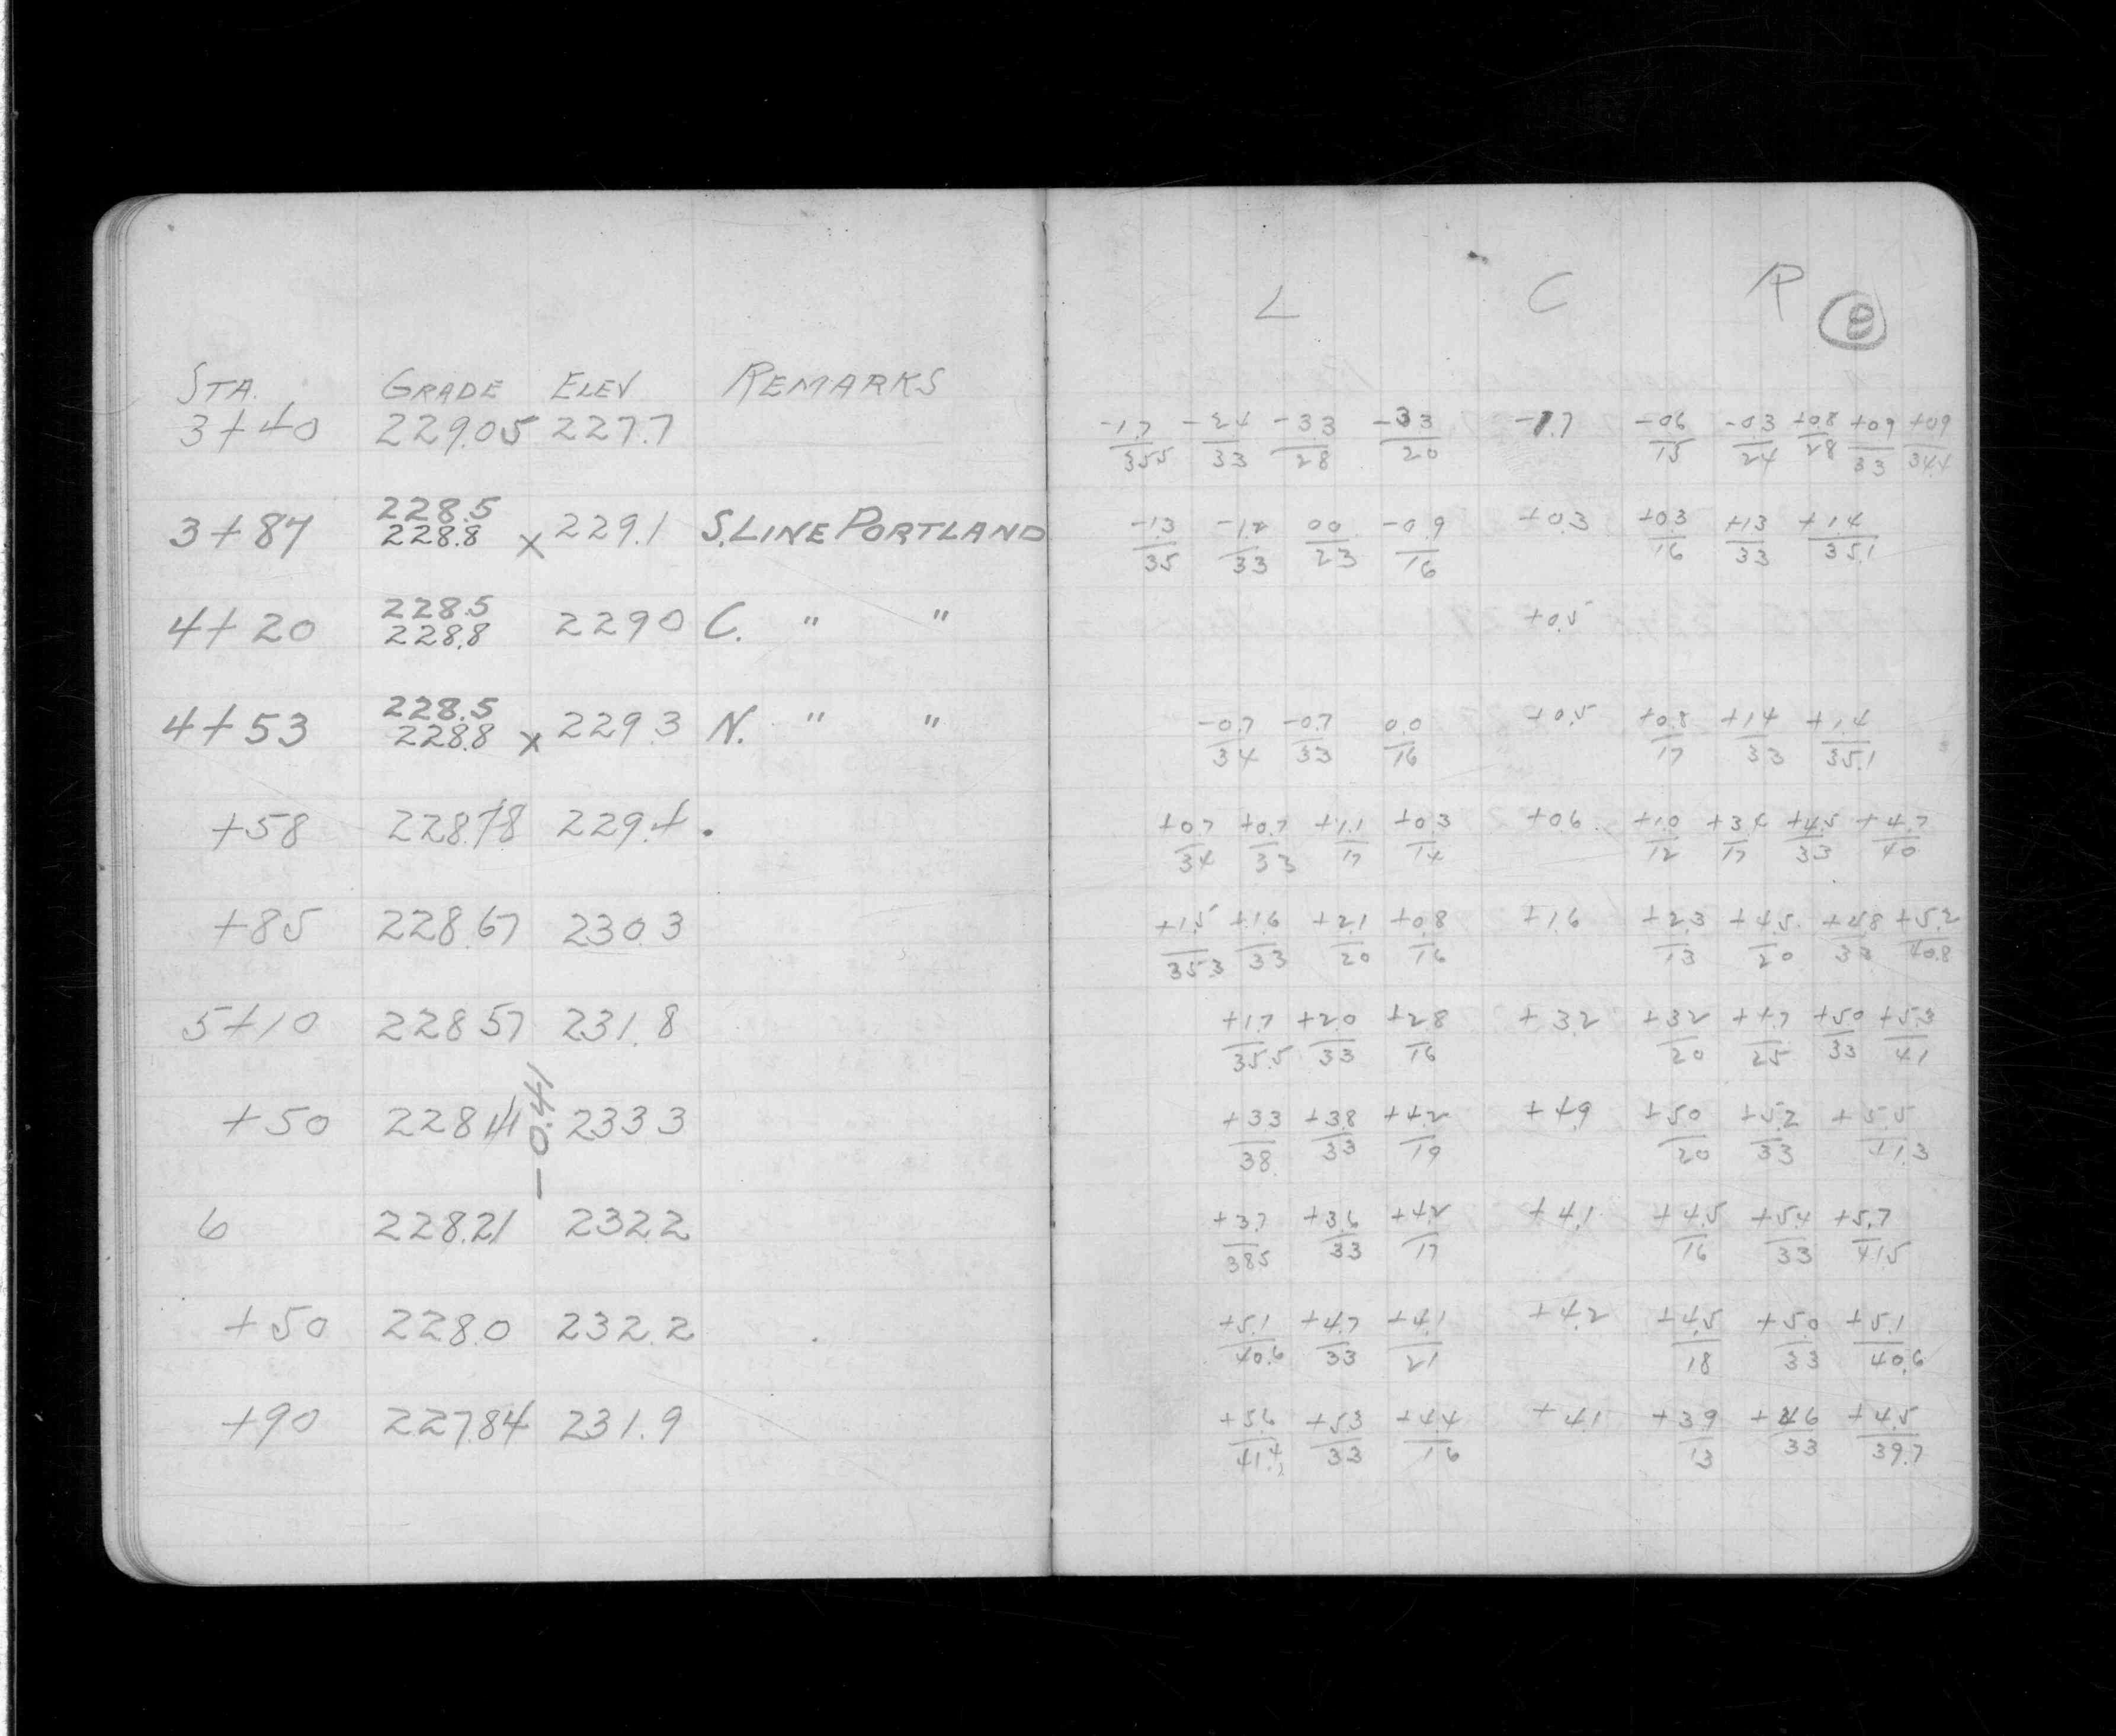 L C R
8
STA. GRADE ELEV REMARKS
3+40 229.05 227.7
-1.7/35.5 -2.4/33 -3.3/28 -3.3/20 -1.7 -0.6/15 -0.3/24 +0.8/28 +0.9/33 +0.9/34.4
228.5
3+87 228.8 x 229.1 S. LINE PORTLAND
-1.3/35 -1.2/33 00/23 -0.9/16 +0.3 +0.3/16 +1.3/33 +1.4/35.1
228.5
4+20 228.8 229.0 C. " "
+0.5
228.5
4+53 228.8 x 229.3 N. " "
-0.7/34 -0.7/33 0.0/16 +0.5 +0.8/17 +1.4/33 +1.4/35.1
+58 228.78 229.4
+0.7/34 +0.7/33 +1.1/17 +0.3/14 +0.6 +1.0/12 +3.4/17 +4.5/33 +4.7/40
+85 228.67 230.3
+1.5/35.3 +1.6/33 +2.1/20 +0.8/16 +1.6 +2.3/13 +4.5/20 +4.8/33 +5.2/40.8
5+10 228.57 231.8
+1.7/35.5 +2.0/33 +2.8/16 +3.2 +3.2/20 +4.7/25 +5.0/33 +5.3/41
-0.41
+50 228.41 233.3
+3.3/38 +3.8/33 +4.2/19 +4.9 +5.0/20 +5.2/33 +5.5/41.3
6 228.21 232.2
+3.7/38.5 +3.6/33 +4.2/17 +4.1 +4.5/16 +5.4/33 +5.7/41.5
+50 228.0 232.2
+5.1/40.6 +4.7/33 +4.1/21 +4.2 +4.5/18 +5.0/33 +5.1/40.6
+90 227.84 231.9
+5.6/41.4 +5.3/33 +4.4/16 +4.1 +3.9/13 +4.6/33 +4.5/39.7